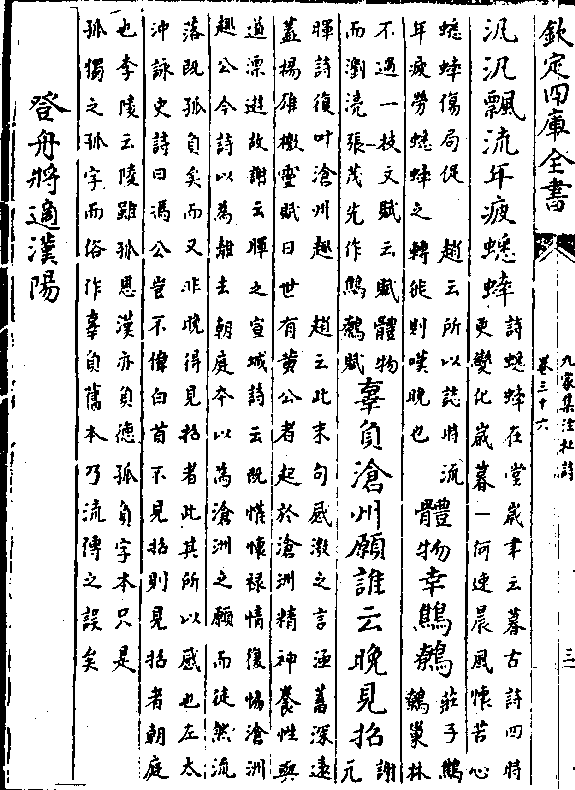 欽定四庫全書
九家集注杜詩
卷三十六
三
汎汎飄流年疲蟋蟀
詩蟋蟀在堂歲聿云暮古詩四時
更變化歲暮一何速晨風懷苦心
蟋蟀傷局促 趙云所以誌時流
年疲勞蟋蟀之轉徙則嘆晚也
體物幸鷦鷯
莊子鷦
鷯巢林
不過一枝文賦云賦體物
而瀏湸張茂先作鷦鷯賦
辜負滄州願誰云晚見招
謝
元
暉詩復叶滄州趣 趙云此末句感激之言涵蓄深遠
蓋楊雄檄靈賦曰世有黄公者起於滄洲精神養性與
道漂遊故謝云暉之宣城詩云既懽懷禄情復協滄洲
趣公今詩以為離去朝庭本以為滄洲之願而徒然流
落既孤負矣而又非晚得見招者此其所以感也左太
沖詠史詩曰馮公豈不偉白首不見招則見招者朝庭
也李陵云陵雖孤恩漢亦負德孤負字本只是
孤獨之孤字而俗作辜負舊本乃流傳之誤矣
登舟將適漢陽